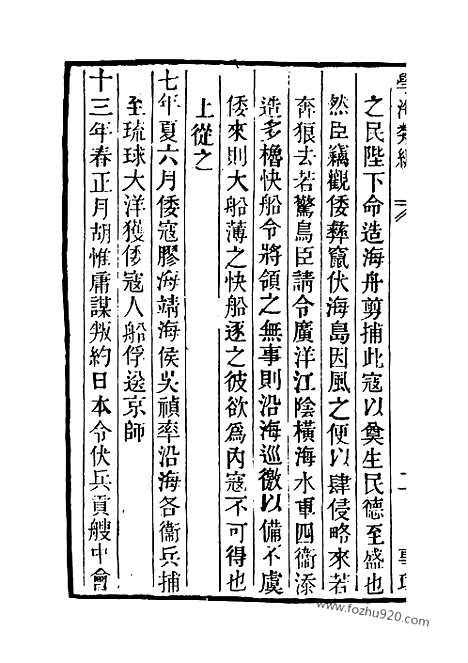 學海類編
二
之民陛下命造海舟剪捕此寇以奠生民德至盛也
然臣竊觀倭彝竄伏海島因風之便以肆侵略來若
奔狼去若驚鳥臣請令廣洋江陰橫海水軍四衞添
造多櫓快船令將領之無事則沿海巡徼以備不虞
倭來則大船薄之快船逐之彼欲爲內寇不可得也
上從之
七年夏六月倭寇膠海靖海侯吳禎率沿海各衞兵捕
至琉球大洋獲倭寇人船俘送京師
十三年春正月胡惟庸謀叛約日本令伏兵貢艘中會
www.fozhu920.com